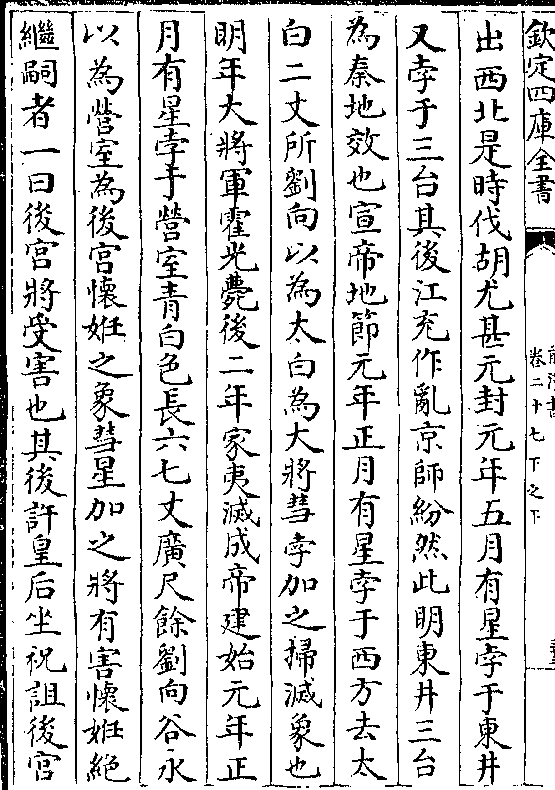 欽定四庫全書
前漢書
卷二十七下之下
出西北是時伐胡尤甚元封元年五月有星孛于東井
又孛于三台其後江充作亂京師紛然此明東井三台
為秦地效也宣帝地節元年正月有星孛于西方去太
白二丈所劉向以為太白為大將彗孛加之掃滅象也
明年大將軍霍光薨後二年家夷滅成帝建始元年正
月有星孛于營室青白色長六七丈廣尺餘劉向谷永
以為營室為後宮懷姙之象彗星加之將有害懷姙絶
繼嗣者一曰後宮將受害也其後許皇后坐祝詛後宮